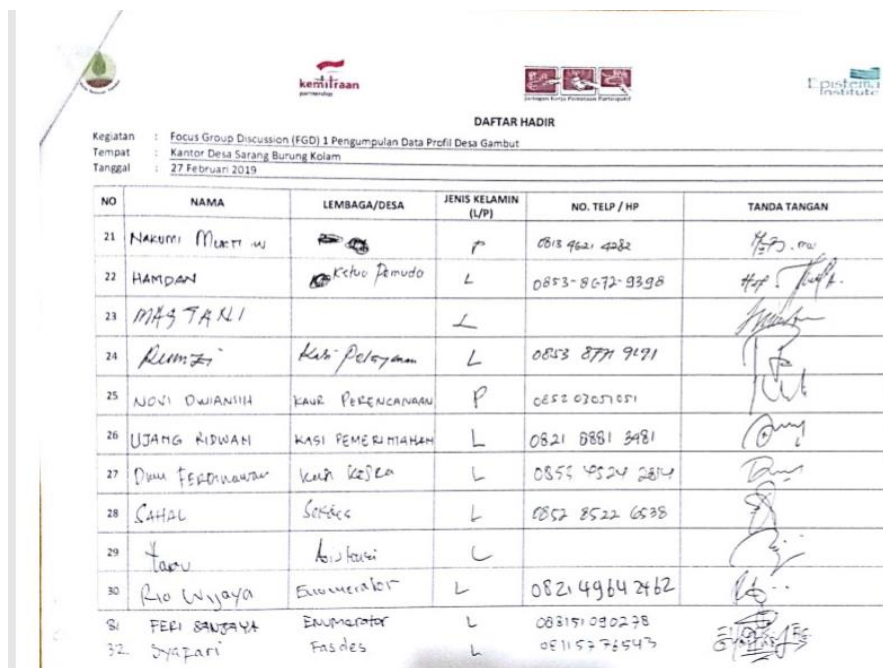 kemitraan
partnership
Jaringan Kerja Pemetaan Partisipatif
Epistema
Institute
DAFTAR HADIR
Kegiatan : Focus Group Discussion (FGD) 1 Pengumpulan Data Profil Desa Gambut
Tempat : Kantor Desa Sarang Burung Kolam
Tanggal : 27 Februari 2019
NO NAMA LEMBAGA/DESA JENIS KELAMIN (L/P) NO. TELP / HP TANDA TANGAN
21 NAKUMI MUKTI W P 0813 4621 4282
22 HAMDAN Ketua Pemuda L 0853-8672-9398
23 MASTANI L
24 Rumzi Kasi Pelayanan L 0853
25 NOVI DWIANSIH KAUR PERENCANAAN P
26 UJANG RIDWAN KASI PEMERINTAHAN L 0821 8881 3981
27 FERDINAWAN L
28 SAHAL Sekdes L 0852 8522 6538
29 L
30 Rio Wijaya Enumerator L 0821 4964 2462
31 FERI SANJAYA ENUMerator L 083151090278
32. Syafari Fasdes L